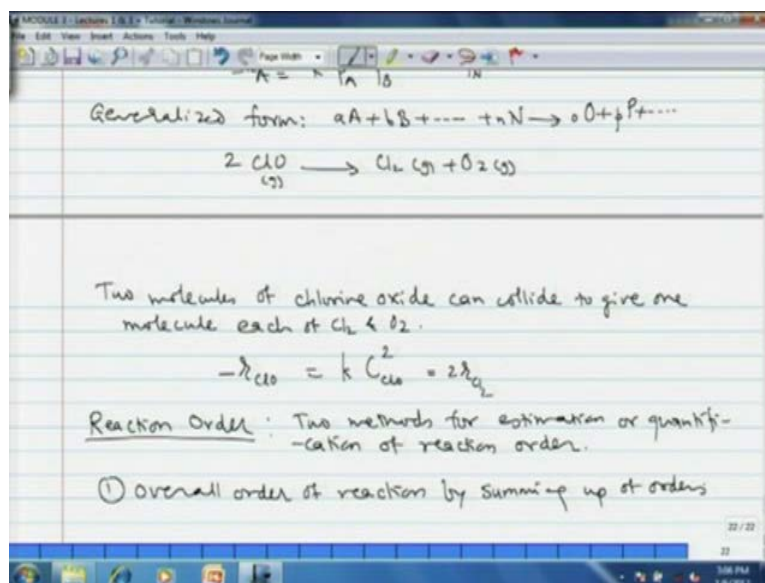 MODULE 3 - Lectures 1 & 3 + Tutorial - Windows Journal
File Edit View Insert Actions Tools Help
Page Width
Generalized form: aA + bB + ---- + nN → oO + pP + ----
2 ClO (g) → Cl2 (g) + O2 (g)
Two molecules of chlorine oxide can collide to give one
molecule each of Cl2 & O2.
-rClO = k C²ClO = 2rO2
Reaction Order: Two methods for estimation or quantifi-
-cation of reaction order.
① Overall order of reaction by summing up of orders
22 / 22
22
3:06 PM